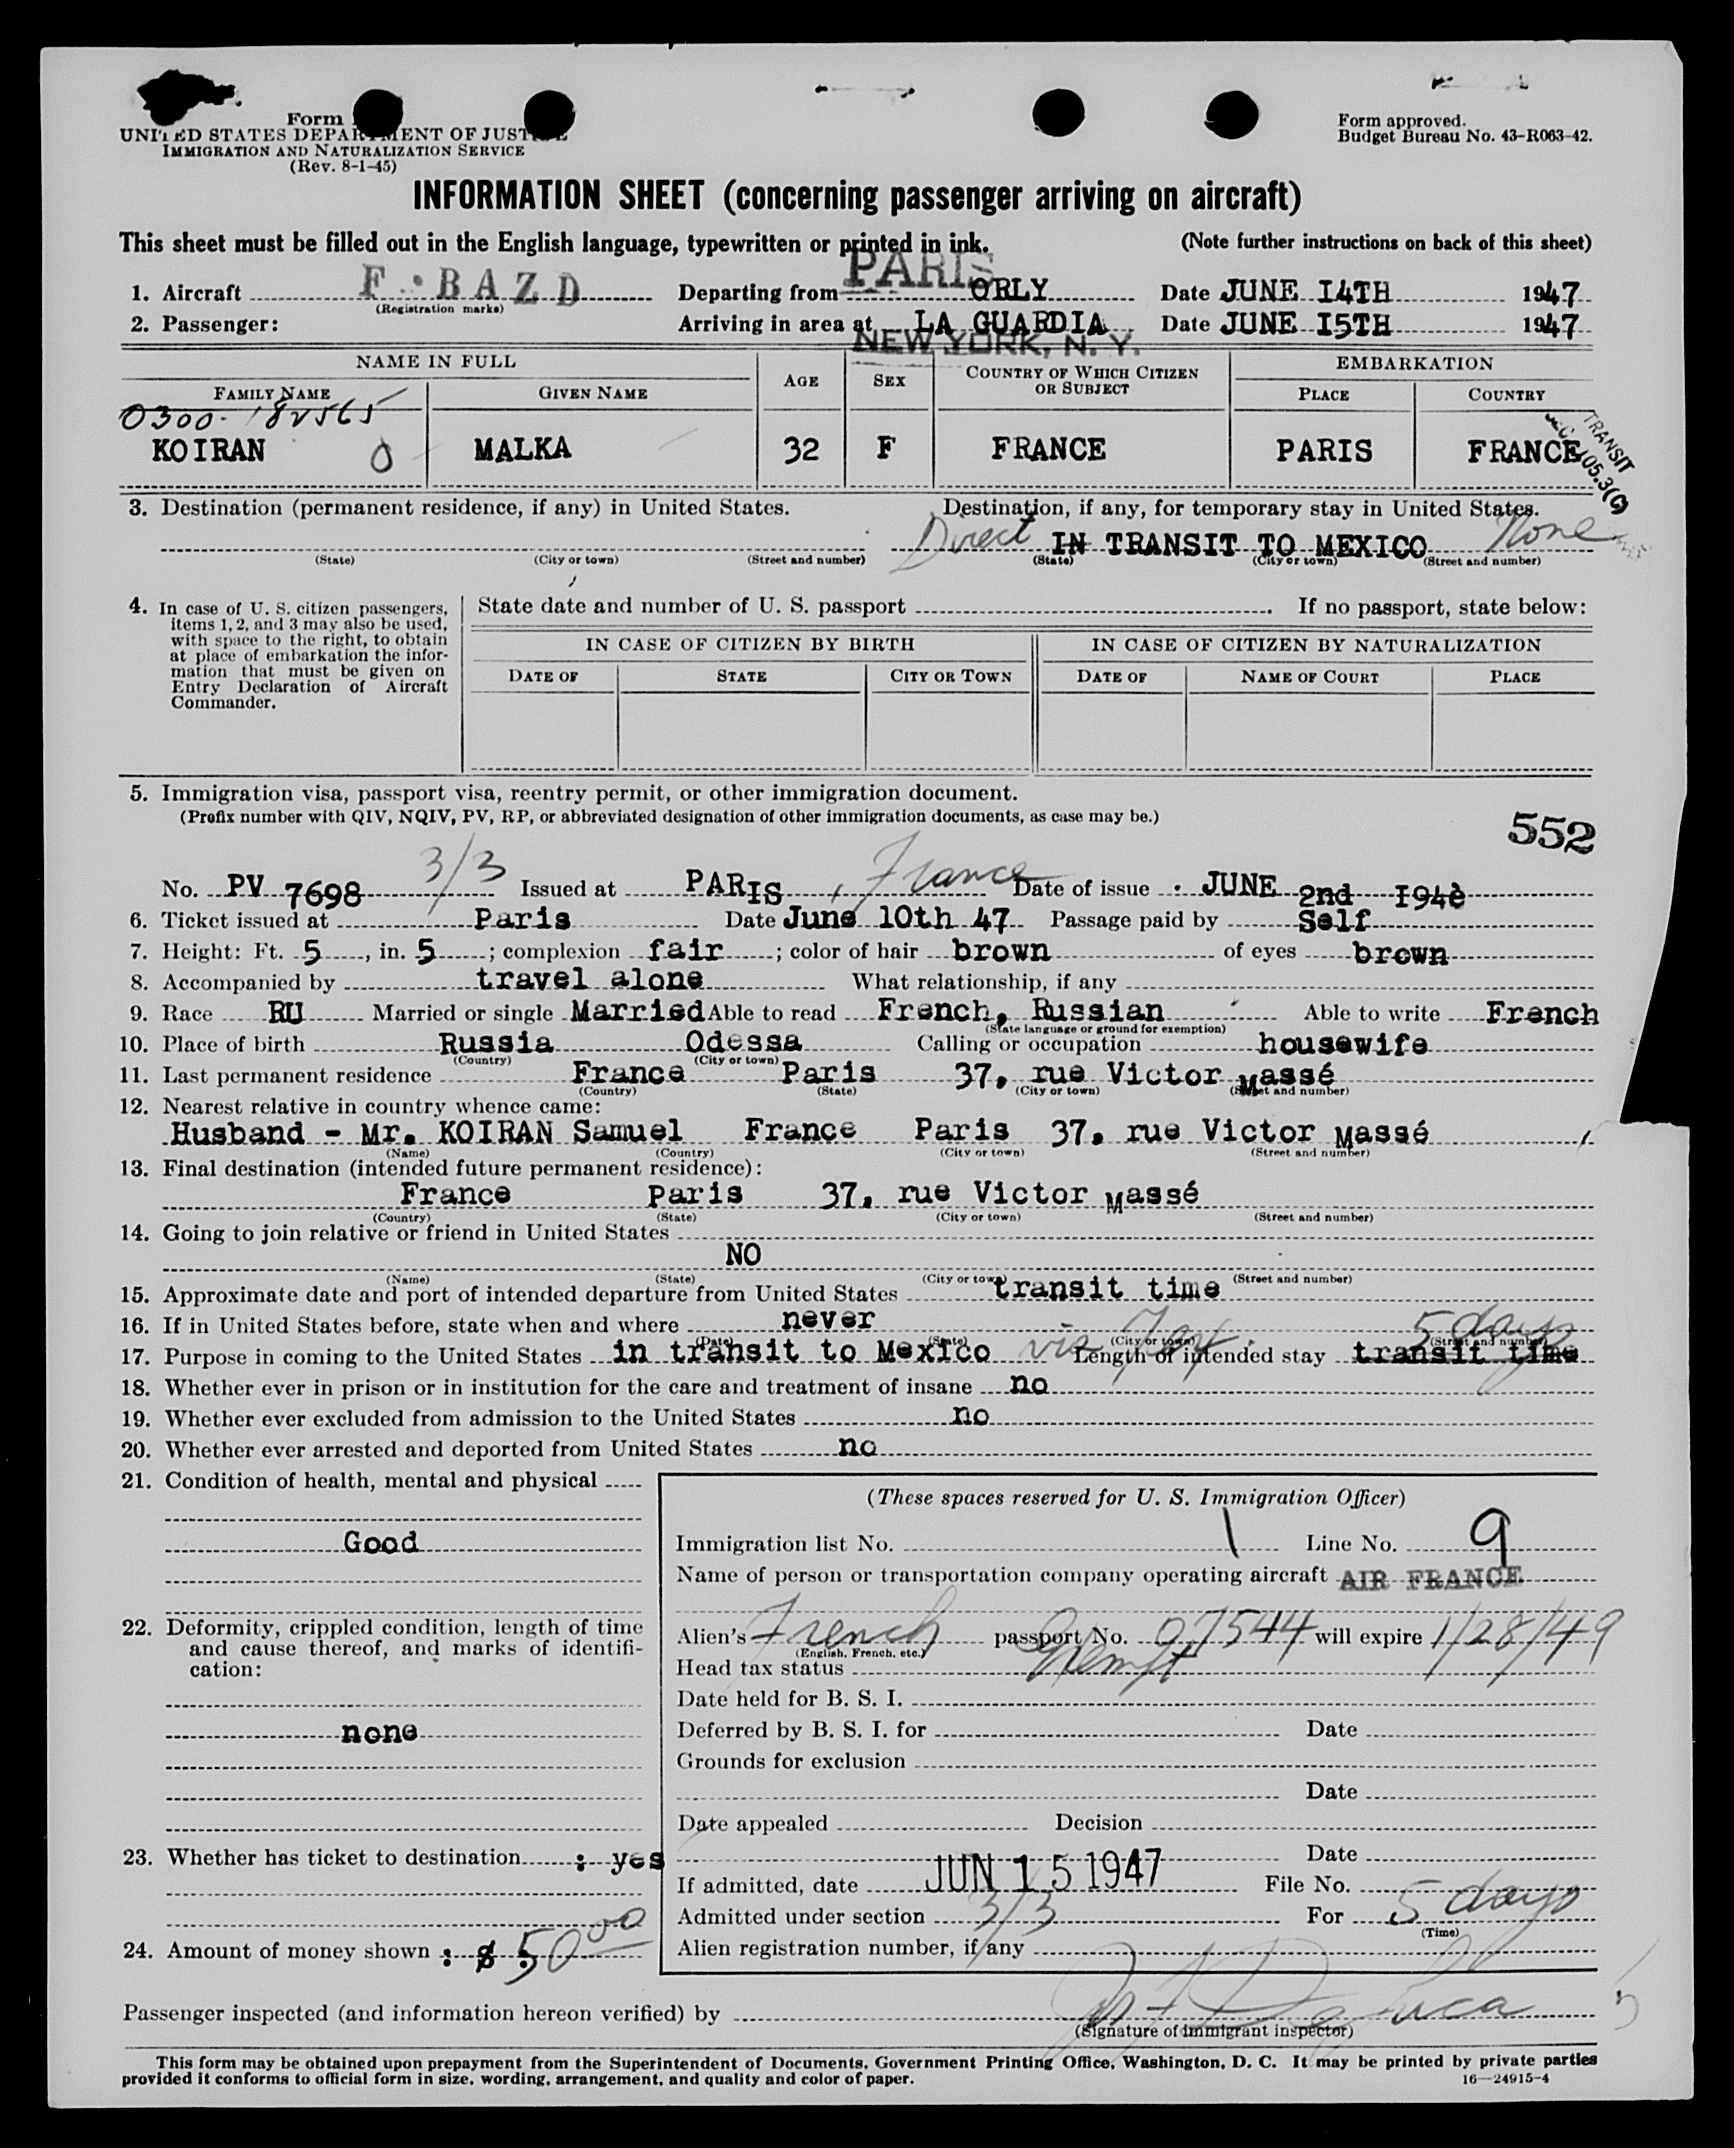 Form
UNITED STATES DEPARTMENT OF JUSTICE
IMMIGRATION AND NATURALIZATION SERVICE
(Rev. 8-1-45)
Form approved.
Budget Bureau No. 43-R063-42.
INFORMATION SHEET (concerning passenger arriving on aircraft)
This sheet must be filled out in the English language, typewritten or printed in ink.
(Note further instructions on back of this sheet)
1. Aircraft F·BAZD Departing from PARIS ORLY Date JUNE I4TH 1947
(Registration marks)
2. Passenger: Arriving in area at LA GUARDIA Date JUNE I5TH 1947
NEW YORK, N. Y.
NAME IN FULL AGE SEX COUNTRY OF WHICH CITIZEN OR SUBJECT EMBARKATION
FAMILY NAME GIVEN NAME PLACE COUNTRY
0300-182565
KOIRAN 0 MALKA 32 F FRANCE PARIS FRANCE
TRANSIT
SEC. 105.3(C)
3. Destination (permanent residence, if any) in United States. Destination, if any, for temporary stay in United States.
Direct IN TRANSIT TO MEXICO None
(State) (City or town) (Street and number) (State) (City or town) (Street and number)
4. In case of U. S. citizen passengers, items 1, 2, and 3 may also be used, with space to the right, to obtain at place of embarkation the information that must be given on Entry Declaration of Aircraft Commander.
State date and number of U. S. passport . If no passport, state below:
IN CASE OF CITIZEN BY BIRTH IN CASE OF CITIZEN BY NATURALIZATION
DATE OF STATE CITY OR TOWN DATE OF NAME OF COURT PLACE
5. Immigration visa, passport visa, reentry permit, or other immigration document.
(Prefix number with QIV, NQIV, PV, RP, or abbreviated designation of other immigration documents, as case may be.)
552
No. PV 7698 3/3 Issued at PARIS, France Date of issue JUNE 2nd
6. Ticket issued at Paris Date June 10th 47 Passage paid by Self
7. Height: Ft. 5, in. 5; complexion fair; color of hair brown of eyes brown
8. Accompanied by travel alone What relationship, if any
9. Race RU Married or single Married Able to read French, Russian Able to write French
(State language or ground for exemption)
10. Place of birth Russia Odessa Calling or occupation housewife
(Country) (City or town)
11. Last permanent residence France Paris 37, rue Victor Massé
(Country) (State) (City or town) (Street and number)
12. Nearest relative in country whence came:
Husband - Mr. KOIRAN Samuel France Paris 37, rue Victor Massé
(Name) (Country) (City or town) (Street and number)
13. Final destination (intended future permanent residence):
France Paris 37, rue Victor Massé
(Country) (State) (City or town) (Street and number)
14. Going to join relative or friend in United States
NO
(Name) (State) (City or town) (Street and number)
15. Approximate date and port of intended departure from United States transit time
16. If in United States before, state when and where never
(Date) (State) (City or town) (Street and number)
5 days
17. Purpose in coming to the United States in transit to Mexico via Length of intended stay transit time
18. Whether ever in prison or in institution for the care and treatment of insane no
19. Whether ever excluded from admission to the United States no
20. Whether ever arrested and deported from United States no
21. Condition of health, mental and physical
Good
22. Deformity, crippled condition, length of time and cause thereof, and marks of identification:
none
23. Whether has ticket to destination : yes
24. Amount of money shown : $ 50 00
(These spaces reserved for U. S. Immigration Officer)
Immigration list No. 1 Line No. 9
Name of person or transportation company operating aircraft AIR FRANCE
Alien's French passport No. 07544 will expire 1/28/49
(English, French, etc.)
Head tax status Exempt
Date held for B. S. I.
Deferred by B. S. I. for Date
Grounds for exclusion
Date
Date appealed Decision
Date
If admitted, date JUN 15 1947 File No.
Admitted under section 3/3 For 5 days
(Time)
Alien registration number, if any
Passenger inspected (and information hereon verified) by
(Signature of immigrant inspector)
This form may be obtained upon prepayment from the Superintendent of Documents, Government Printing Office, Washington, D. C. It may be printed by private parties
provided it conforms to official form in size, wording, arrangement, and quality and color of paper.
16—24915-4